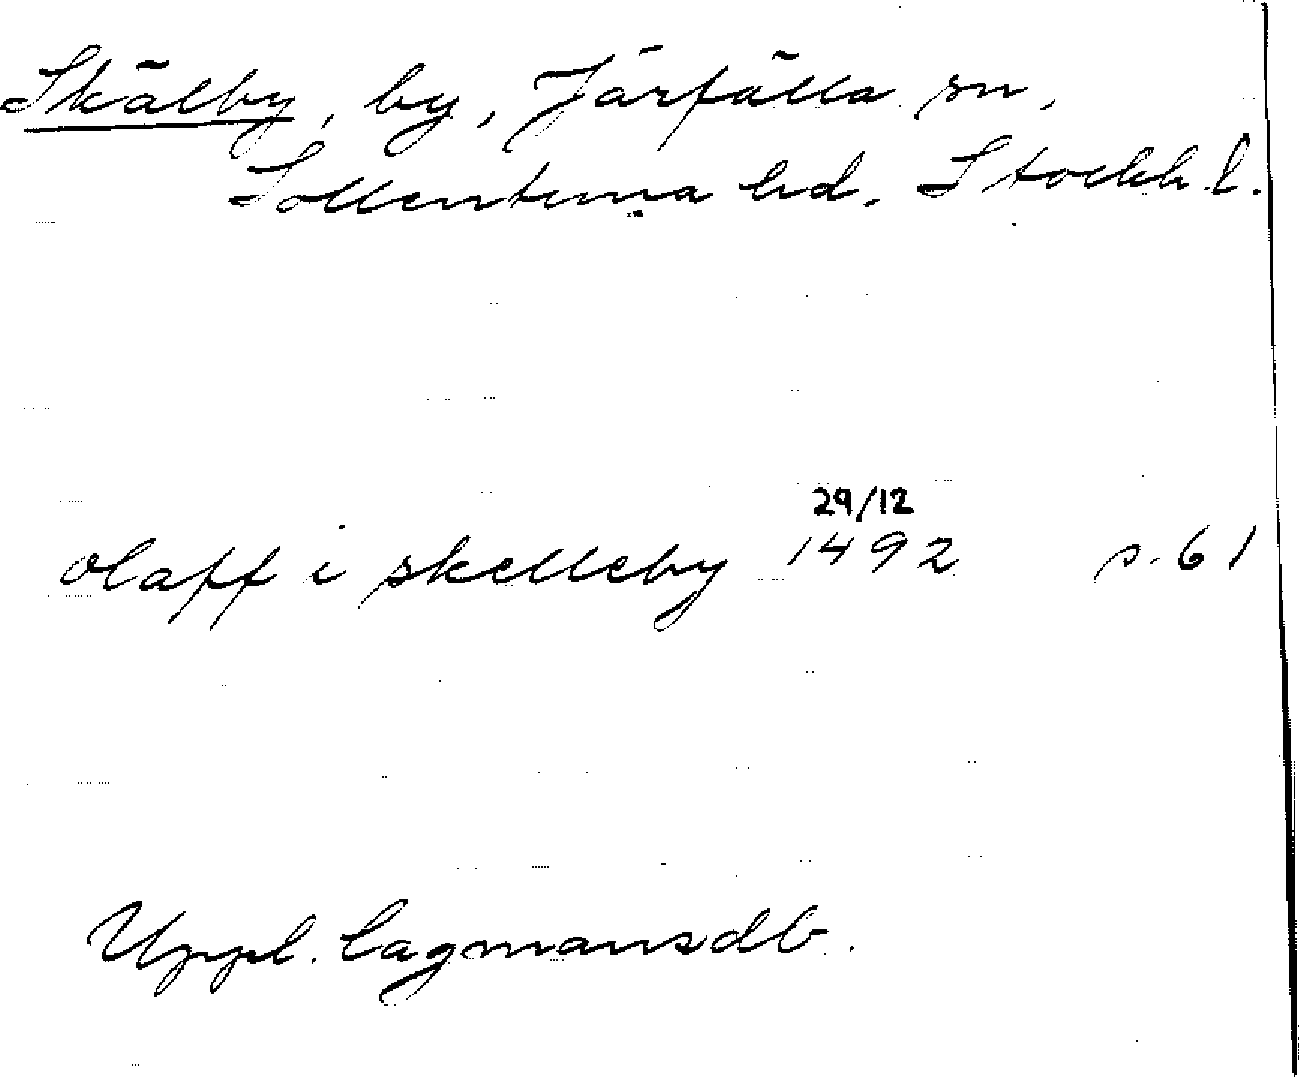 Skälby, by, Järfälla sn,
Sollentuna hd. Stockh. l.
29/12
olaff i skelleby 1492 s. 61
Uppl. lagmansdb.